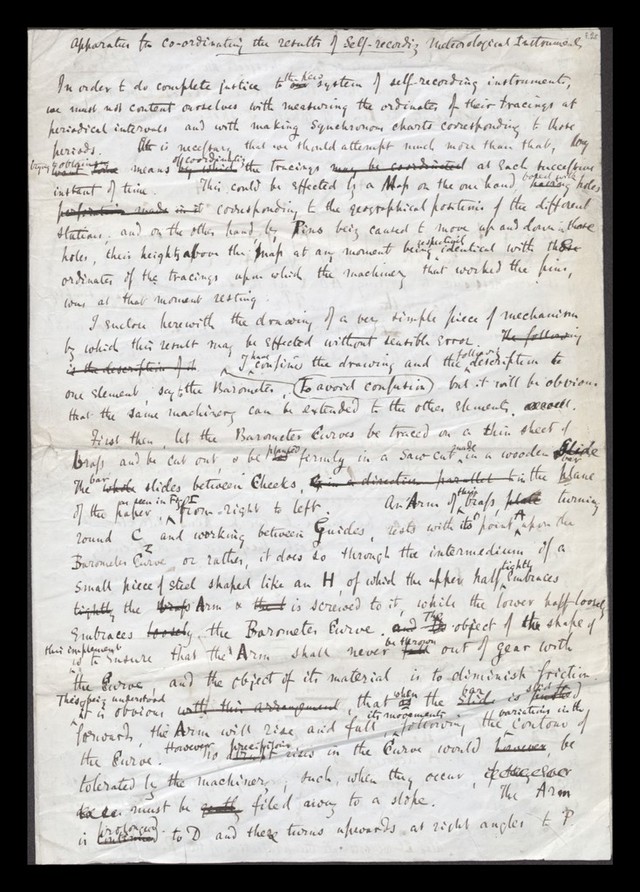 Apparatus for co-ordinating the results of Self-recording Meteorological Instruments
In order to do complete justice to the new system of self-recording instruments,
we must not content ourselves with measuring the ordinates of their tracings at
periodical intervals and with making synchronous charts corresponding to those
periods. It is necessary that we should attempt much more than that, by
means of coordinating by which the tracings may be coordinated at each successive
instant of time. This could be effected by a Map on the one hand, bored with having holes
perforations made in it corresponding to the geographical positions of the different
stations, and on the other hand by Pins being caused to move up and down in those
holes, their heights above the map at any moment being respectively identical with those
ordinates of the tracings upon which the machinery that worked the pins,
was at that moment resting.
I enclose herewith the drawing of a very simple piece of mechanism
by which this result may be effected without sensible error. The following
is the description of it I have confine the drawing and the following description to
one element, say the Barometer, (to avoid confusion) but it will be obvious
that the same machinery can be extended to the other elements.
First then, let the Barometer Curves be traced on a thin sheet of
brass and be cut out, & be planted firmly in a saw cut made in a wooden slide bar
The bar whole slides between Cheeks, in a direction parallel to in the plane
of the paper, as seen in Fig I from right to left. An Arm of thin brass, plate turning
round C and working between Guides, rests with its point A upon the
Barometer Curve or rather, it does so through the intermedium of a
small piece of steel shaped like an H, of which the upper half tightly embraces
tightly the brass Arm & is screwed to it, while the lower half loosely
embraces loosely the Barometer Curve. and The object of the shape of
this implement is to ensure that the Arm shall never be thrown out of gear with
the Curve and the object of its material is to diminish friction.
This being understood it is obvious with this arrangement, that when as the bar slide is
forwards the Arm will rise and fall its movements following the variations in the contour of
the Curve. However no precipitous abrupt rises in the Curve would however, be
tolerated by the machinery; such, when they occur,
must be filed away to a slope. The Arm
is prolonged continued to D and then turns upwards at right angles to P